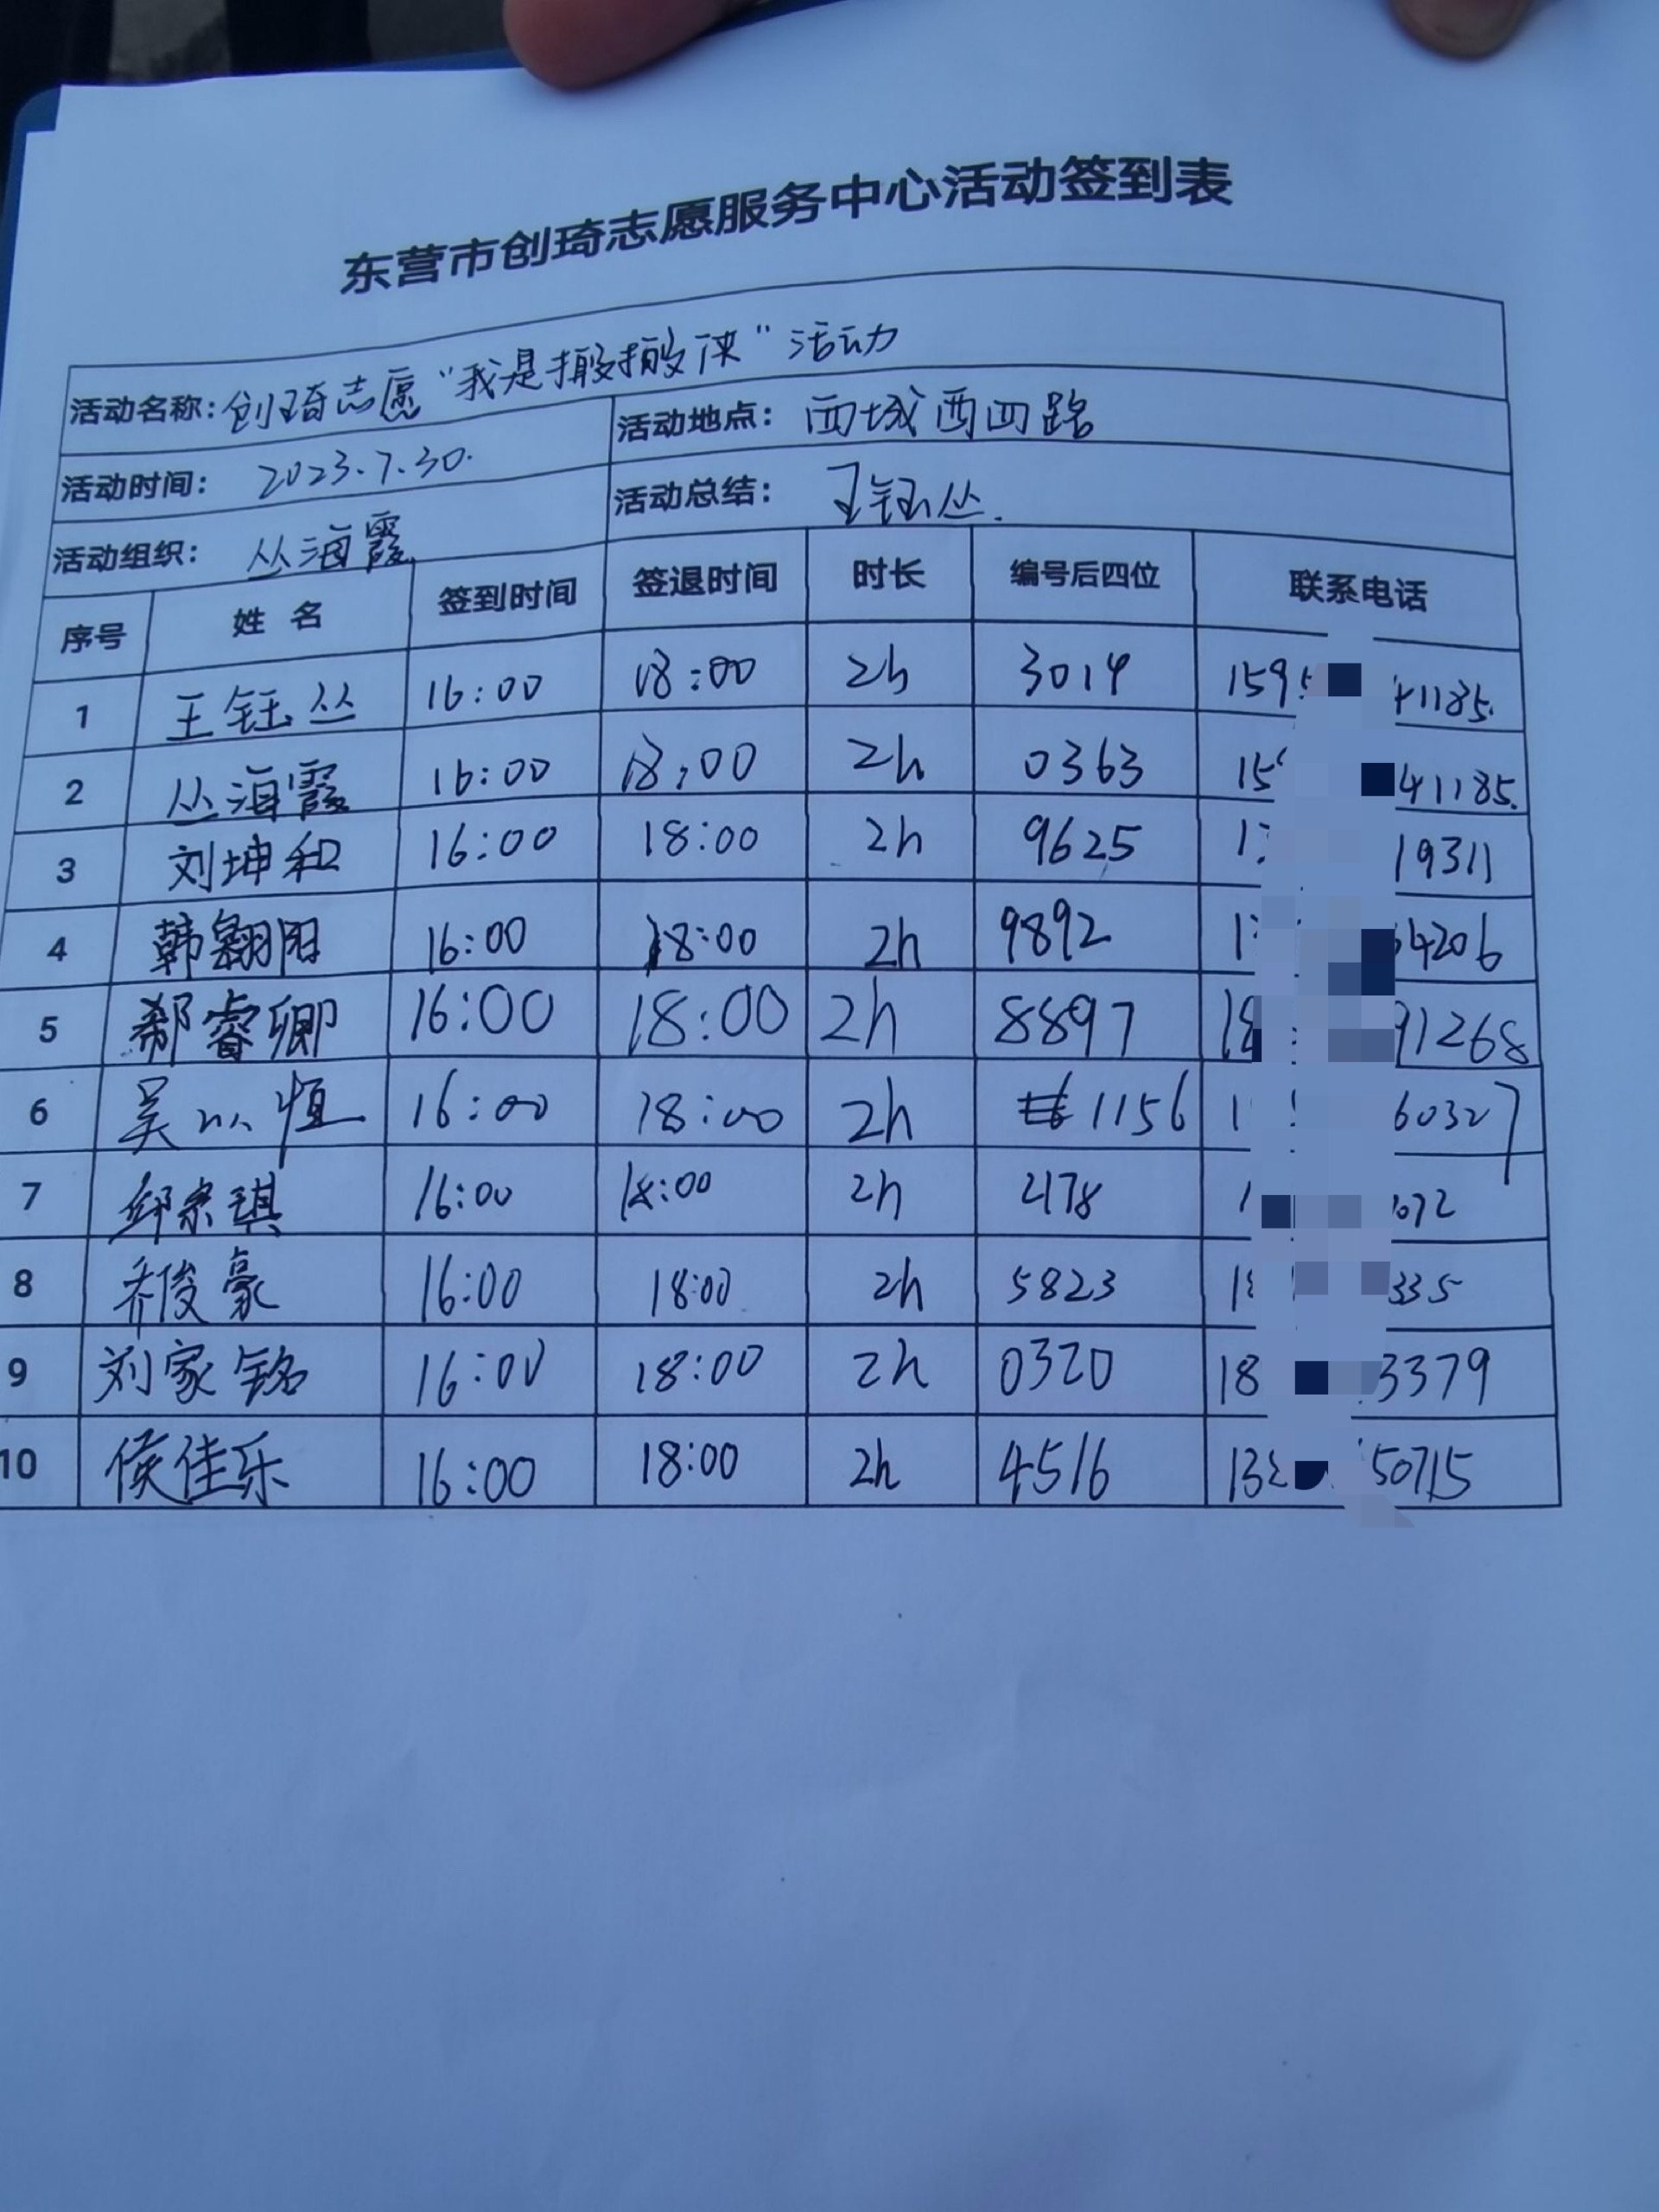 东营市创琦志愿服务中心活动签到表
活动名称: 创琦志愿“我是搬搬侠”活动
活动时间: 2023.7.30. 活动地点: 西城西四路
活动组织: 丛海霞 活动总结: 王钰丛.
序号 姓 名 签到时间 签退时间 时长 编号后四位 联系电话
1 王钰丛 16:00 18:00 2h 3014 159 41185.
2 丛海霞 16:00 18:00 2h 0363 15 41185.
3 刘坤和 16:00 18:00 2h 9625 1 19311
4 韩翱阳 16:00 18:00 2h 9892 1 4206
5 郗睿卿 16:00 18:00 2h 8897 18 91268
6 吴以恒 16:00 18:00 2h 1156 1 60327
7 邱宗琪 16:00 18:00 2h 2178 1 072
8 乔俊豪 16:00 18:00 2h 5823 18 335
9 刘家铭 16:00 18:00 2h 0320 18 3379
10 侯佳乐 16:00 18:00 2h 4516 13 50715